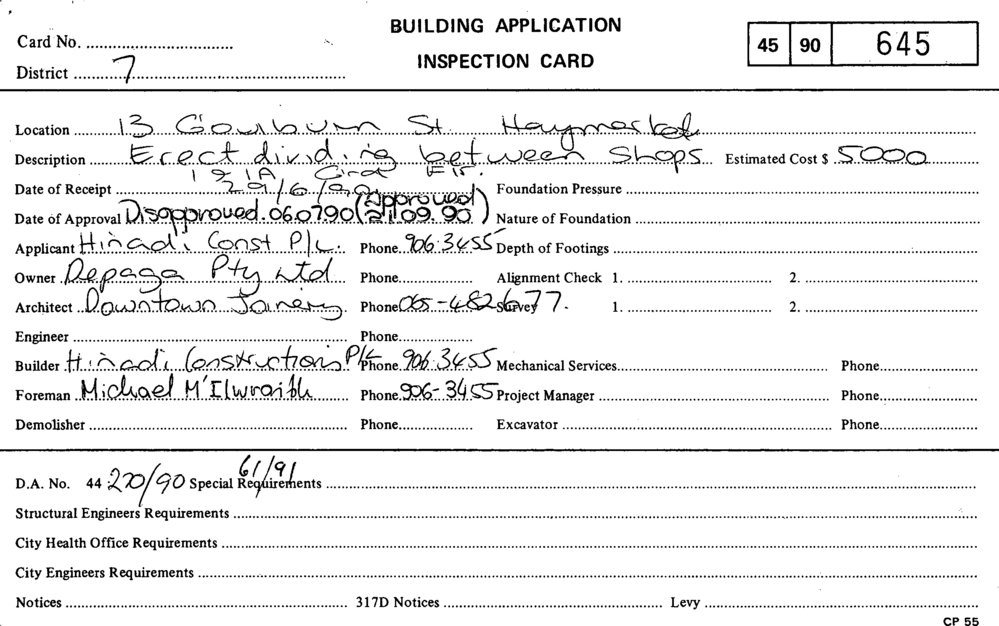 BUILDING APPLICATION
INSPECTION CARD
Card No. ...............
District ...7...
45 90 645
Location ... 13 Goulburn St. Haymarket
Description ... Erect dividing between Shops ... Estimated Cost $ .5000
1 & 1A Grd Flr.
Date of Receipt ... 29/6/90 Foundation Pressure ...............
Date of Approval Disapproved. 060790 (Approved 21.09.90) Nature of Foundation ...............
Applicant Hinadi Const P/L. Phone...906.3455 Depth of Footings ...............
Owner Depaga Pty Ltd Phone............... Alignment Check 1. ............... 2. ...............
Architect Downtown Joinery Phone 065-482677. Survey 1. ............... 2. ...............
Engineer ............... Phone...............
Builder Hinadi Constructions P/L Phone. 906.3455 Mechanical Services............... Phone...............
Foreman Michael M'Ilwraith Phone. 906-3455 Project Manager ............... Phone...............
Demolisher ............... Phone............... Excavator ............... Phone...............
D.A. No. 44 270/90 61/91 Special Requirements ...............
Structural Engineers Requirements ...............
City Health Office Requirements ...............
City Engineers Requirements ...............
Notices ............... 317D Notices ............... Levy ...............
CP 55